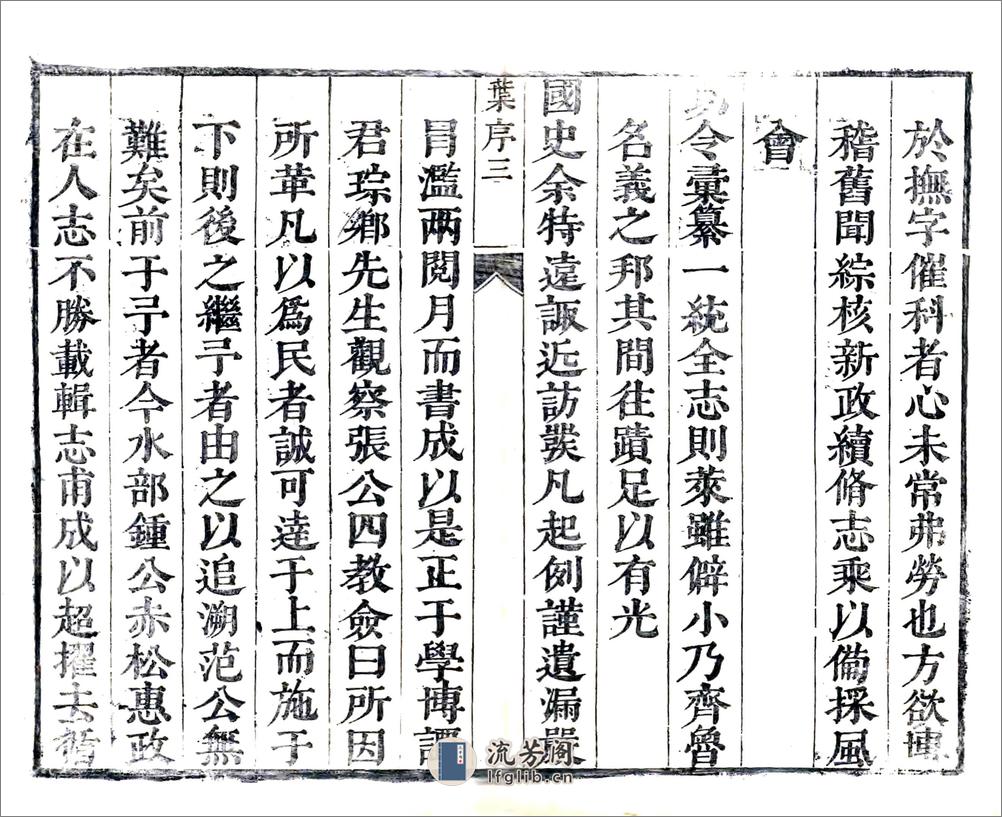 於撫字催科者心未常弗勞也方欲博
稽舊聞綜核新政續脩志乘以備採風
會
令彙纂一統全志則萊雖僻小乃齊魯
名義之邦其間往蹟足以有光
國史余特遠諏近訪發凡起例謹遺漏嚴
葉序三
冐濫兩閱月而書成以是正于學博譚
君琮鄉先生觀察張公四教僉曰所因
所革凡以爲民者誠可逹于上而施于
下則後之繼予者由之以追溯范公無
難矣前于予者今水部鍾公赤松惠政
在人志不勝載輯志甫成以超擢去
流芳阁
lfglib.cn